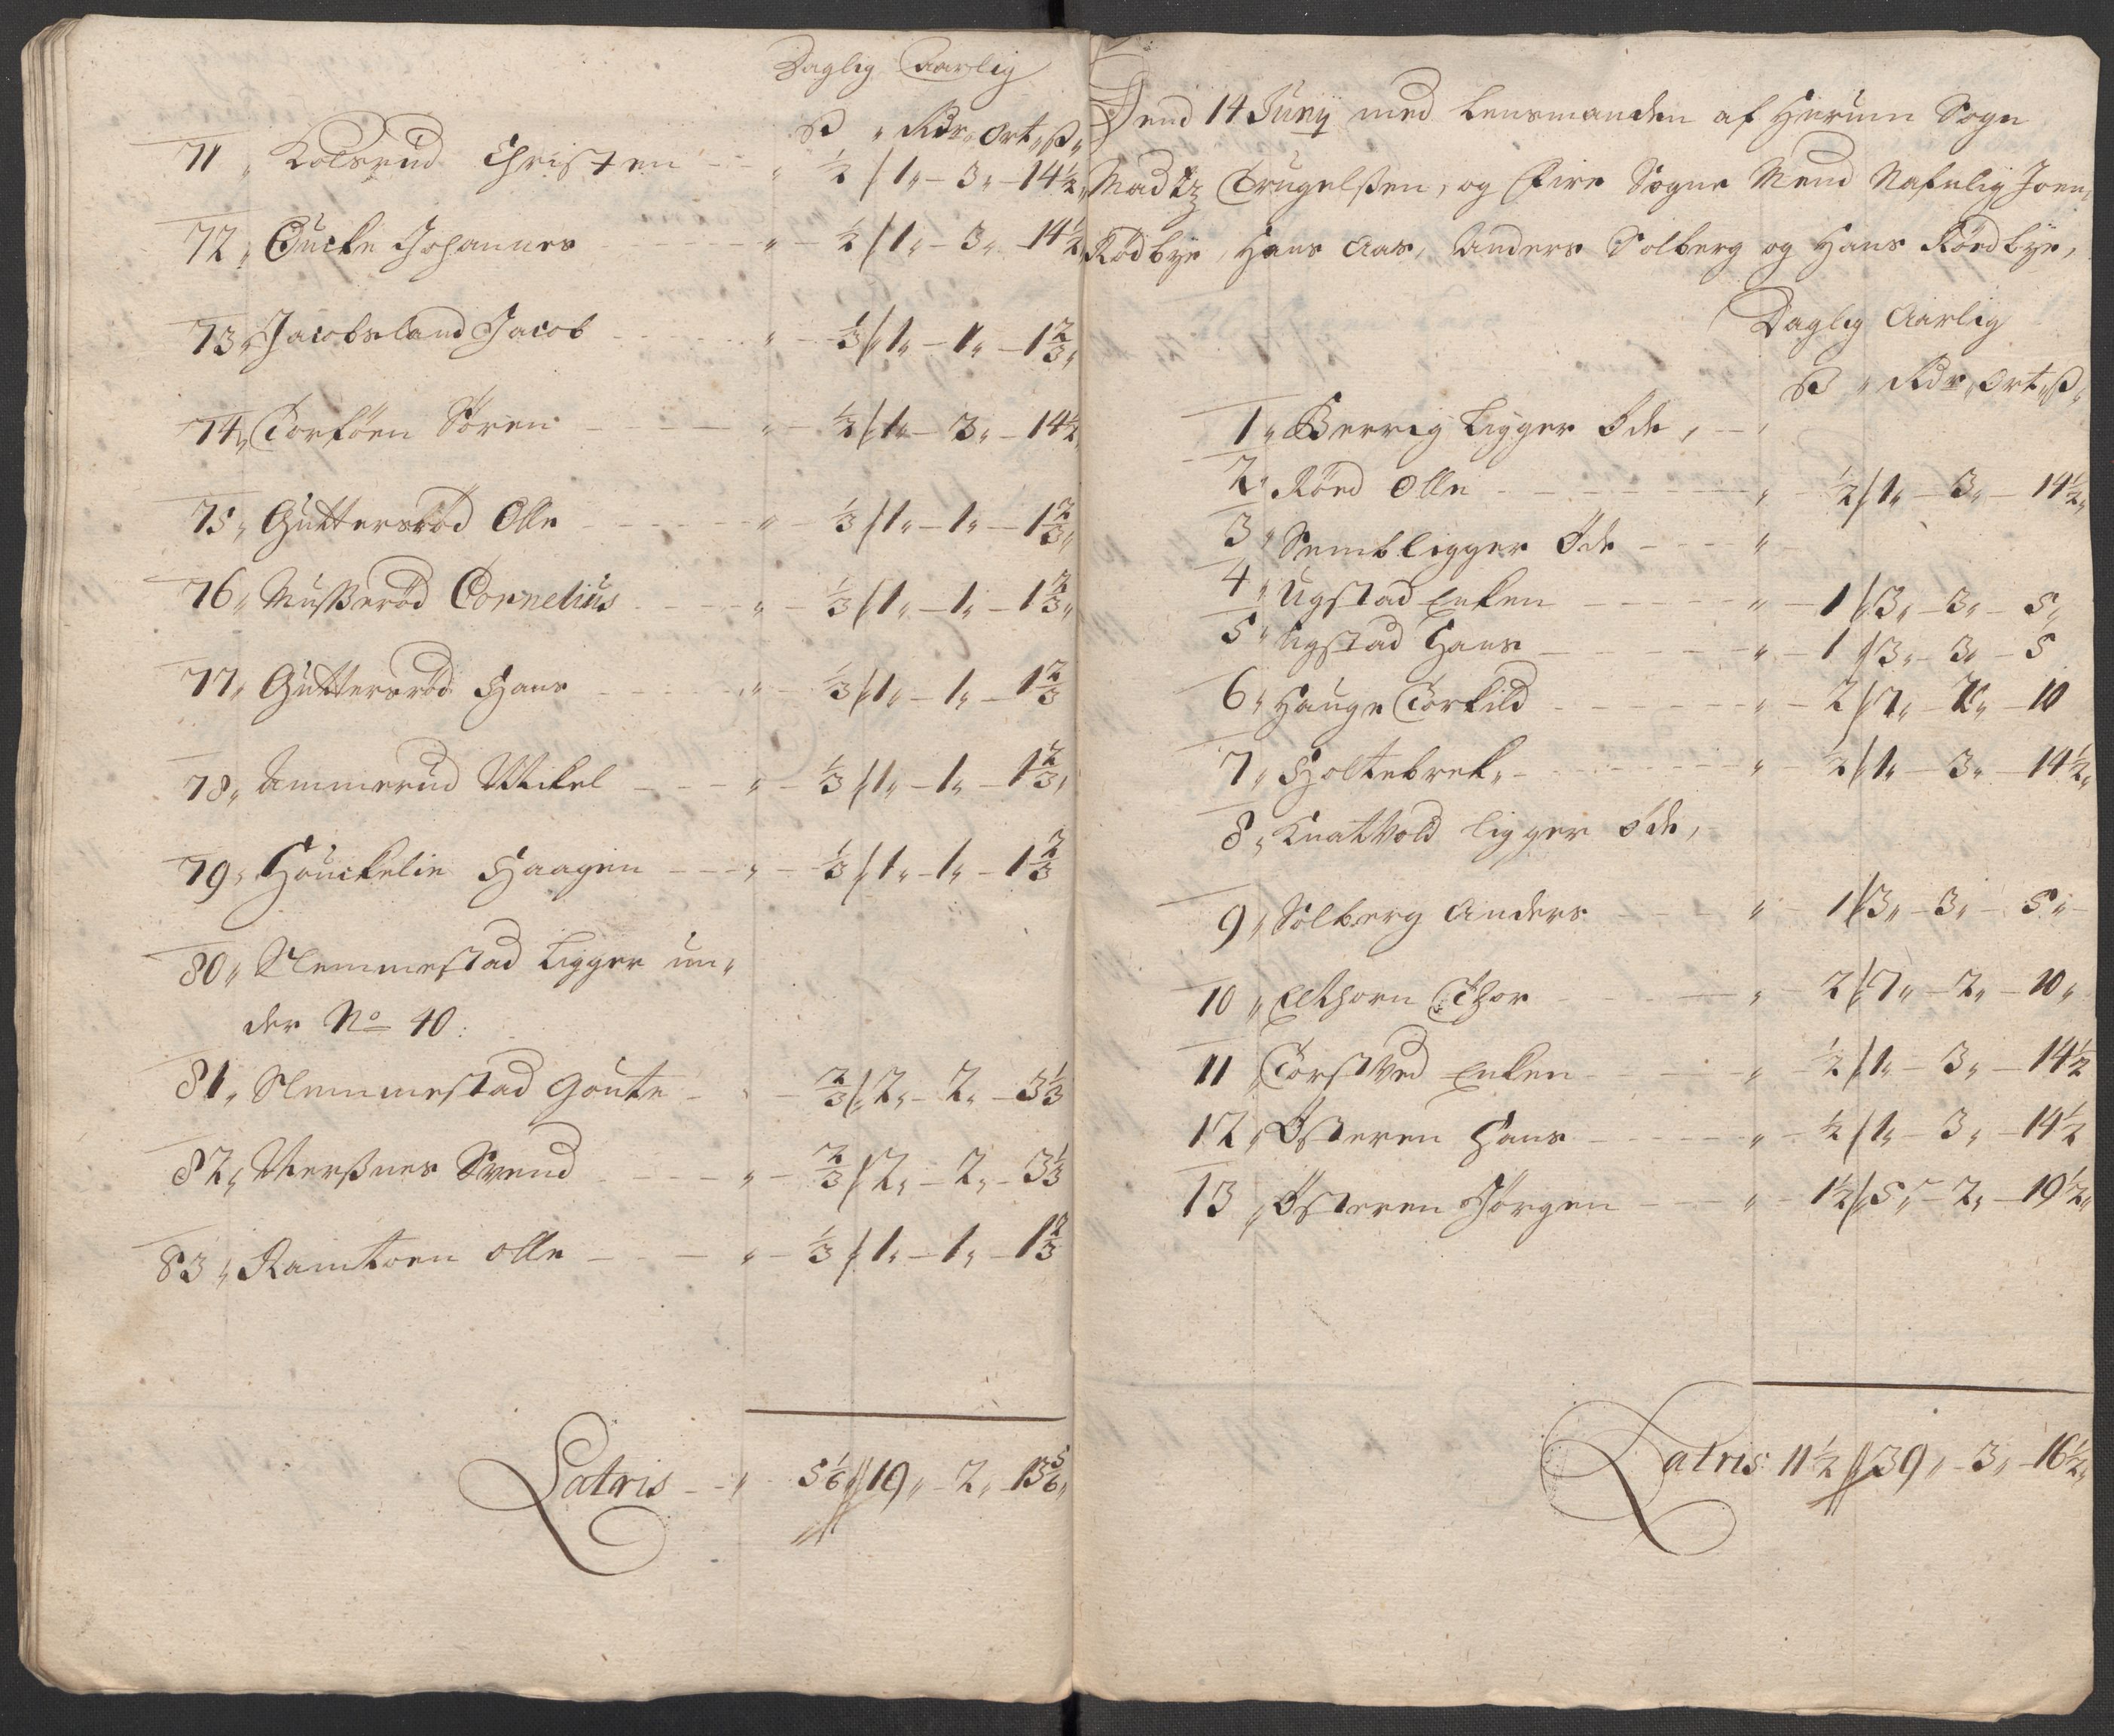 Daglig Aarlig
ß „ Rdr „ ort „ ß „
71 „ Kolsrud Christen „ ½ / 1 „ 3 „ 14½ „
72 „ Tucke Johannes „ ½ / 1 „ 3 „ 14½ „
73 „ Jacobsland Jacob „ ⅓ / 1 „ 1 „ 1⅔ „
74 „ Torföen Sören „ ½ / 1 „ 3 „ 14½ „
75 „ Guttersröd Olle „ ⅓ / 1 „ 1 „ 1⅔ „
76 „ Mußeröd Cornelius „ ⅓ / 1 „ 1 „ 1⅔ „
77 „ Guttersröd Hans „ ⅓ / 1 „ 1 „ 1⅔
78 „ Ammerud Mikel „ ⅓ / 1 „ 1 „ 1⅔ „
79 „ Houckelie Haagen „ ⅓ / 1 „ 1 „ 1⅔
80 „ Slemmestad Ligger un„
der No 40:
81 „ Slemmestad Goute „ ⅔ / 2 „ 2 „ 3⅓
82 „ Nerßnes Svend „ ⅔ / 2 „ 2 „ 3⅓
83 „ Ramtoen olle „ ⅓ / 1 „ 1 „ 1⅔
Latris „ 5⅙ // 19 „ 2 „ 13⅚ „
Dend 14 Juny med Lensmanden af Hurum Sogn
Madtz Trugelßen, og Fire Sogne Mend Nafnlig Joen
Rödbye, Hans Aas, Anders Solberg og Hans Rördbye,
Daglig Aarlig
ß „ Rdr „ ort „ ß „
1 „ Berrig Ligger Öde,
2 „ Röed Olle „ ½ / 1 „ 3 „ 14½ „
3 „ Semb ligger Öde „
4 „ Ugstad Enken „ 1 / 3 „ 3 „ 5 „
5 „ Ugstad Hans „ 1 / 3 „ 3 „ 5
6 „ Hauge Torkild „ 2 / 7 „ 2 „ 10
7 „ Holtebrek „ ½ / 1 „ 3 „ 14½ „
8 „ Knatvold ligger öde,
9 „ Solberg Anders „ 1 / 3 „ 3 „ 5 „
10 „ Elthorn Thor „ 2 / 7 „ 2 „ 10 „
11 „ Torstved Enken „ ½ / 1 „ 3 „ 14½
12 „ Österen Hans „ ½ / 1 „ 3 „ 14½
13 „ Österen Jörgen „ 1½ / 5 „ 2 „ 19½ „
Latris 11½ // 39 „ 3 „ 16½ „